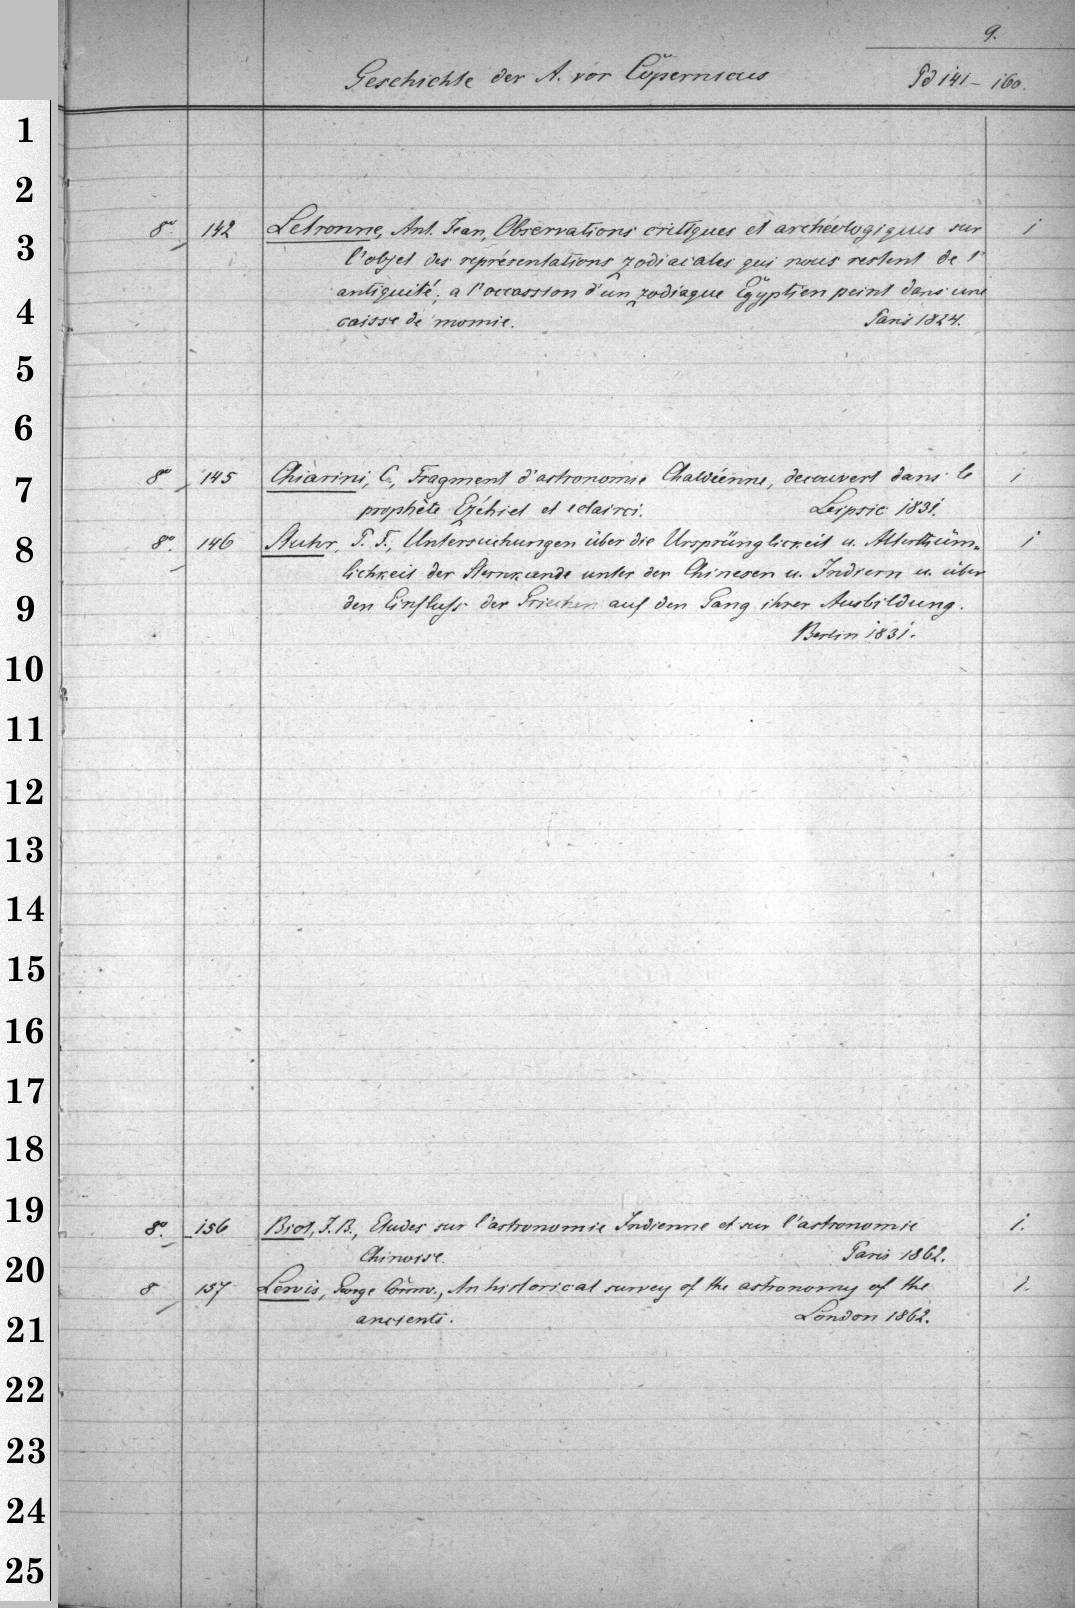 9.
Geschichte der A. vor Copernicus Pd 141 - 160.
1
2
8° 142 Letronne, Ant. Jean, Observations critiques et archéologiques sur 1
3
l'objet des représentations zodiacales qui nous restent de l'
antiquité; a l'occassion d'un zodiaque Egyptien peint dans une
4
caisse de momie. Paris 1824.
5
6
8° 145 Chiarini, C., Fragment d'astronomie Chaldéenne, decouvert dans le 1
7
prophête Ezéhiel et eclairci. Leipsic 1831.
8°. 146 Stuhr, P. F., Untersuchungen über die Ursprünglickeit u. Alterthüm- 1
8
lichkeit der Sternkunde unter den Chinesen u. Indiern u. über
9
den Einfluss der Griechen auf den Gang ihrer Ausbildung.
Berlin 1831.
10
11
12
13
14
15
16
17
18
19
8°. 156 Biot, J. B., Etudes sur l'astronomie Indienne et sur l'astronomie 1.
Chinoise. Paris 1862.
20
8 157 Lewis, George Cornw., An historical survey of the astronomy of the 1.
21
ancients. London 1862.
22
23
24
25